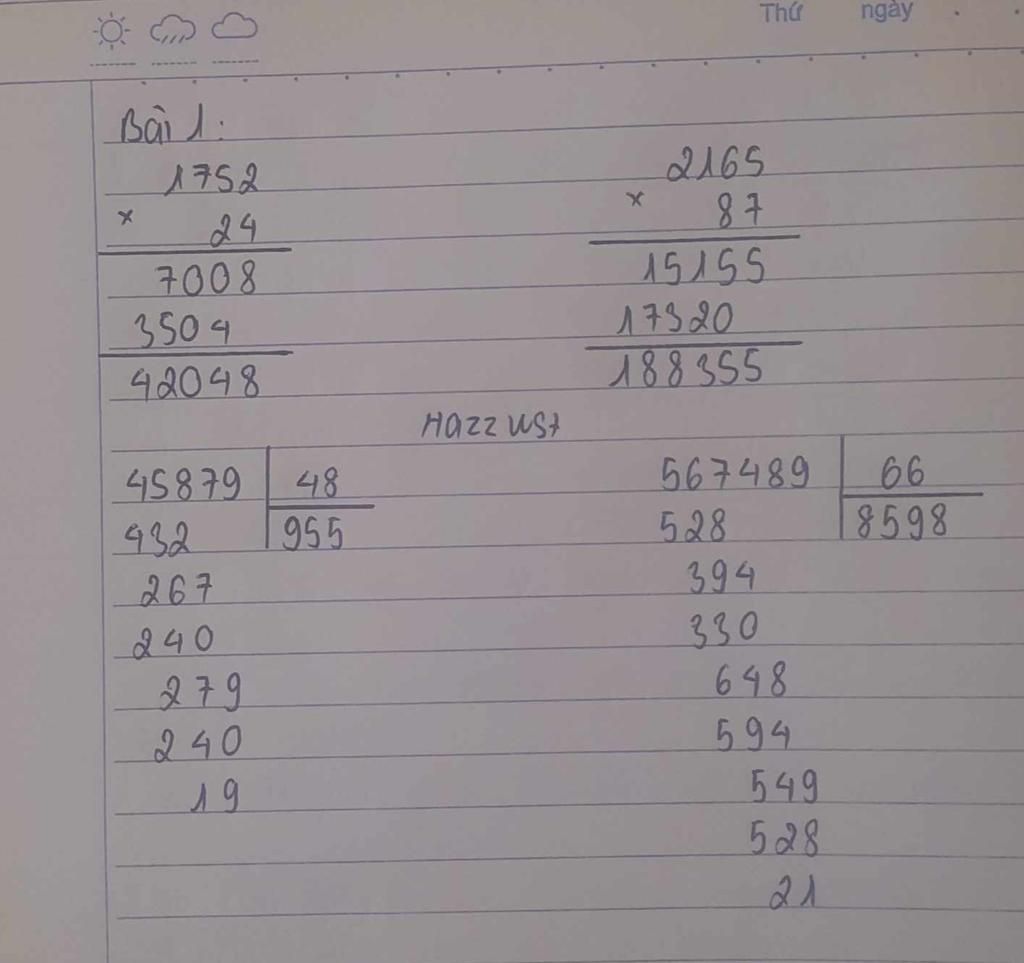 Thứ ngày
Bài 1:
1752
x 24
7008
3504
42048
2165
x 87
15155
17320
188355
45879 48
432 955
267
240
279
240
19
567489 66
528 8598
394
330
648
594
549
528
21